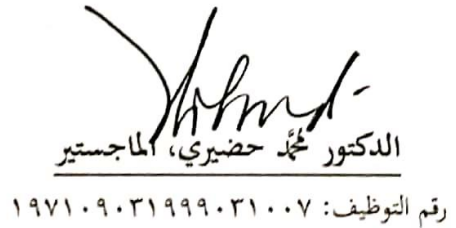 الدكتور محمَّد حضيري، الماجستير
رقم التوظيف: ١٩٧١٠٩٠٣١٩٩٩٠٣١٠٠٧